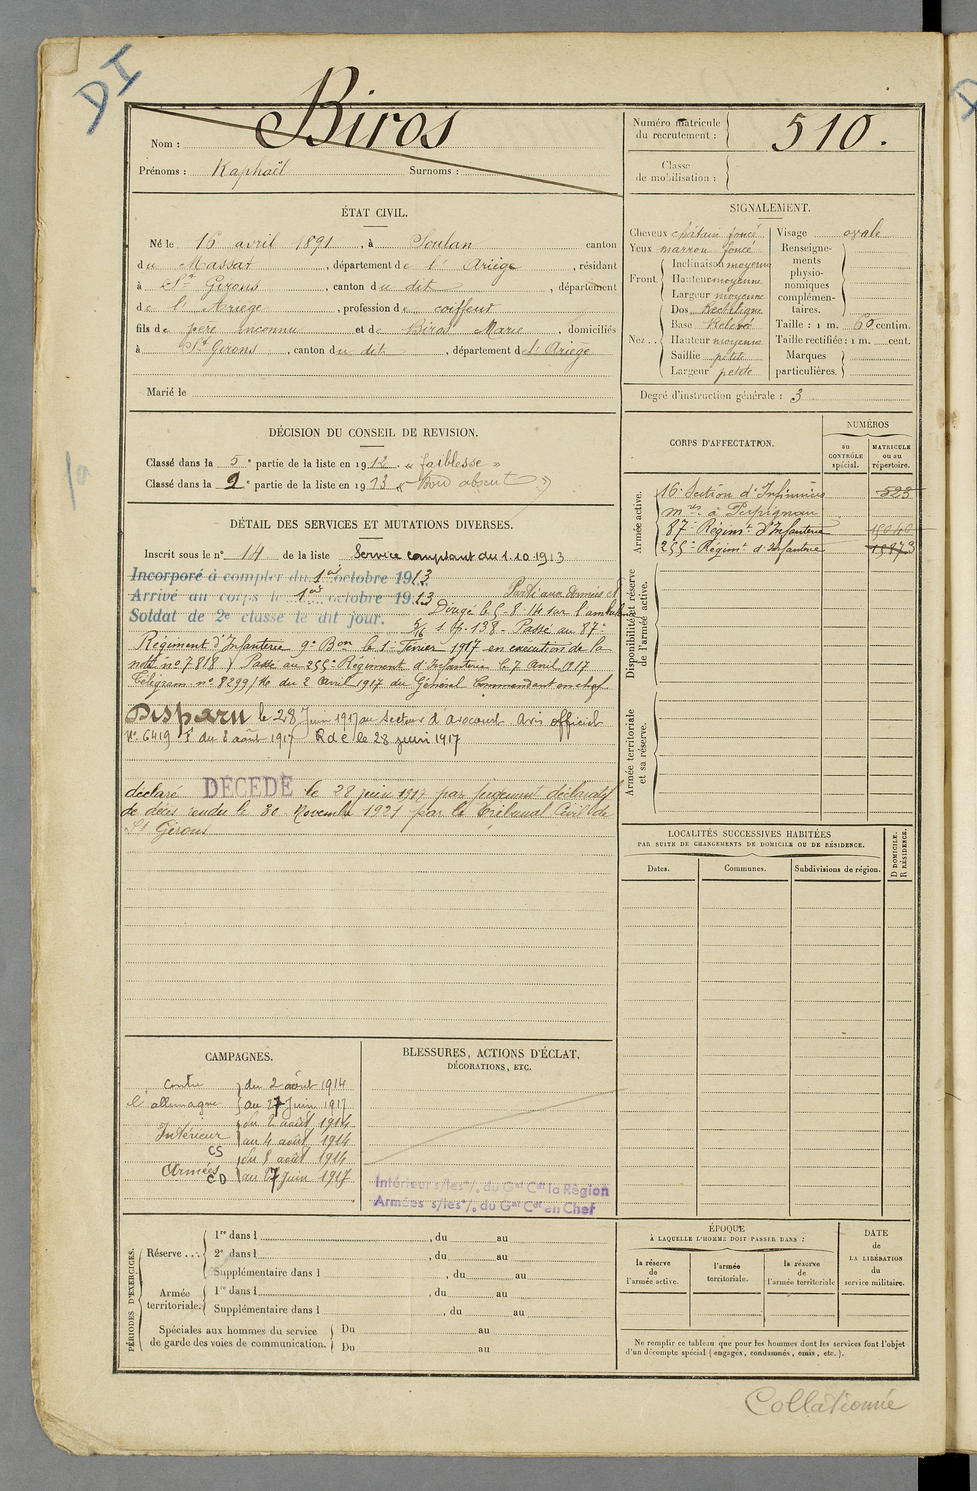 DI
Nom : Biros
Prénoms : Raphaël Surnoms :
Numéro matricule
du recrutement :
510.
Classe
de mobilisation :
ÉTAT CIVIL.
Né le 16 avril 1891, à Soulan canton
du Massat, département de l'Ariège, résidant
à St Girons, canton du dit, département
de l'Ariège, profession de coiffeur
fils de père inconnu et de Biros Marie, domiciliés
à St Girons, canton du dit, département de l'Ariège
Marié le
SIGNALEMENT.
Cheveux châtain foncé
Yeux marron foncé
Front.
Inclinaison moyenne
Hauteur moyenne
Largeur moyenne
Nez..
Dos Rectiligne
Base Relevé
Hauteur moyenne
Saillie petite
Largeur petite
Visage ovale
Renseigne-
ments
physio-
nomiques
complémen-
taires.
Taille : 1 m. 60 centim.
Taille rectifiée : 1 m. cent.
Marques
particulières.
Degré d'instruction générale : 3
DÉCISION DU CONSEIL DE REVISION.
Classé dans la 5e partie de la liste en 1912. « faiblesse »
Classé dans la 2e partie de la liste en 1913 « Bon absent »
1a
DÉTAIL DES SERVICES ET MUTATIONS DIVERSES.
Inscrit sous le n° 14 de la liste Service comptant du 1.10.1913
Incorporé à compter du 1er octobre 1913
Arrivé au corps le 1er octobre 1913. Parti aux armées
Soldat de 2e classe le dit jour. Dirigé le 5-8-14 sur l'
138 - Passé au 87e
Régiment d'Infanterie 9e Bon le 1er Février 1917 en exécution de la
note n° 7818 Passé au 255e Régiment d'Infanterie le 7 Avril 1917
Télégram. n° 8299/ du 2 Avril 1917 du Général Commandant en chef
Disparu le 28 Juin 1917 au Secteur d'Avocourt. Avis officiel
N° 6419 du 2 août 1917 R d c le 28 juin 1917
déclaré DÉCÉDÉ le 28 juin 1917 par jugement déclaratif
de décès rendu le 30 Novembre 1921 par le Tribunal Civil de
St Girons
CORPS D'AFFECTATION.
NUMÉROS
au
CONTRÔLE
spécial.
MATRICULE
ou au
répertoire.
Armée active.
16e Section d'Infirmiers 523
mres à Perpignan
87e Régimt d'Infanterie
255e Régimt d'Infanterie
Disponibilité et réserve
de l'armée active.
Armée territoriale
et sa réserve.
LOCALITÉS SUCCESSIVES HABITÉES
PAR SUITE DE CHANGEMENTS DE DOMICILE OU DE RÉSIDENCE.
Dates.
Communes.
Subdivisions de région.
D DOMICILE.
R RÉSIDENCE.
CAMPAGNES.
Contre
l'allemagne
du 2 août 1914
au 27 Juin 1917
Intérieur
CS
du 2 août 1914
au 4 août 1914
Armées
CD
du 5 août 1914
au 27 Juin 1917
BLESSURES, ACTIONS D'ÉCLAT,
DÉCORATIONS, ETC.
Intérieur s/les o/. du Gal Cdt la Région
Armées s/les o/. du Gal Cdt en Chef
PÉRIODES D'EXERCICES.
Réserve ...
1re dans l , du au
2e dans l , du au
Supplémentaire dans l , du au
Armée
territoriale.
1re dans l , du au
Supplémentaire dans l , du au
Spéciales aux hommes du service
de garde des voies de communication.
Du au
Du au
ÉPOQUE
À LAQUELLE L'HOMME DOIT PASSER DANS :
la réserve
de
l'armée active.
l'armée
territoriale.
la réserve
de
l'armée territoriale
DATE
de
LA LIBÉRATION
du
service militaire.
Ne remplir ce tableau que pour les hommes dont les services font l'objet
d'un décompte spécial (engagés, condamnés, omis, etc.).
Collationnée